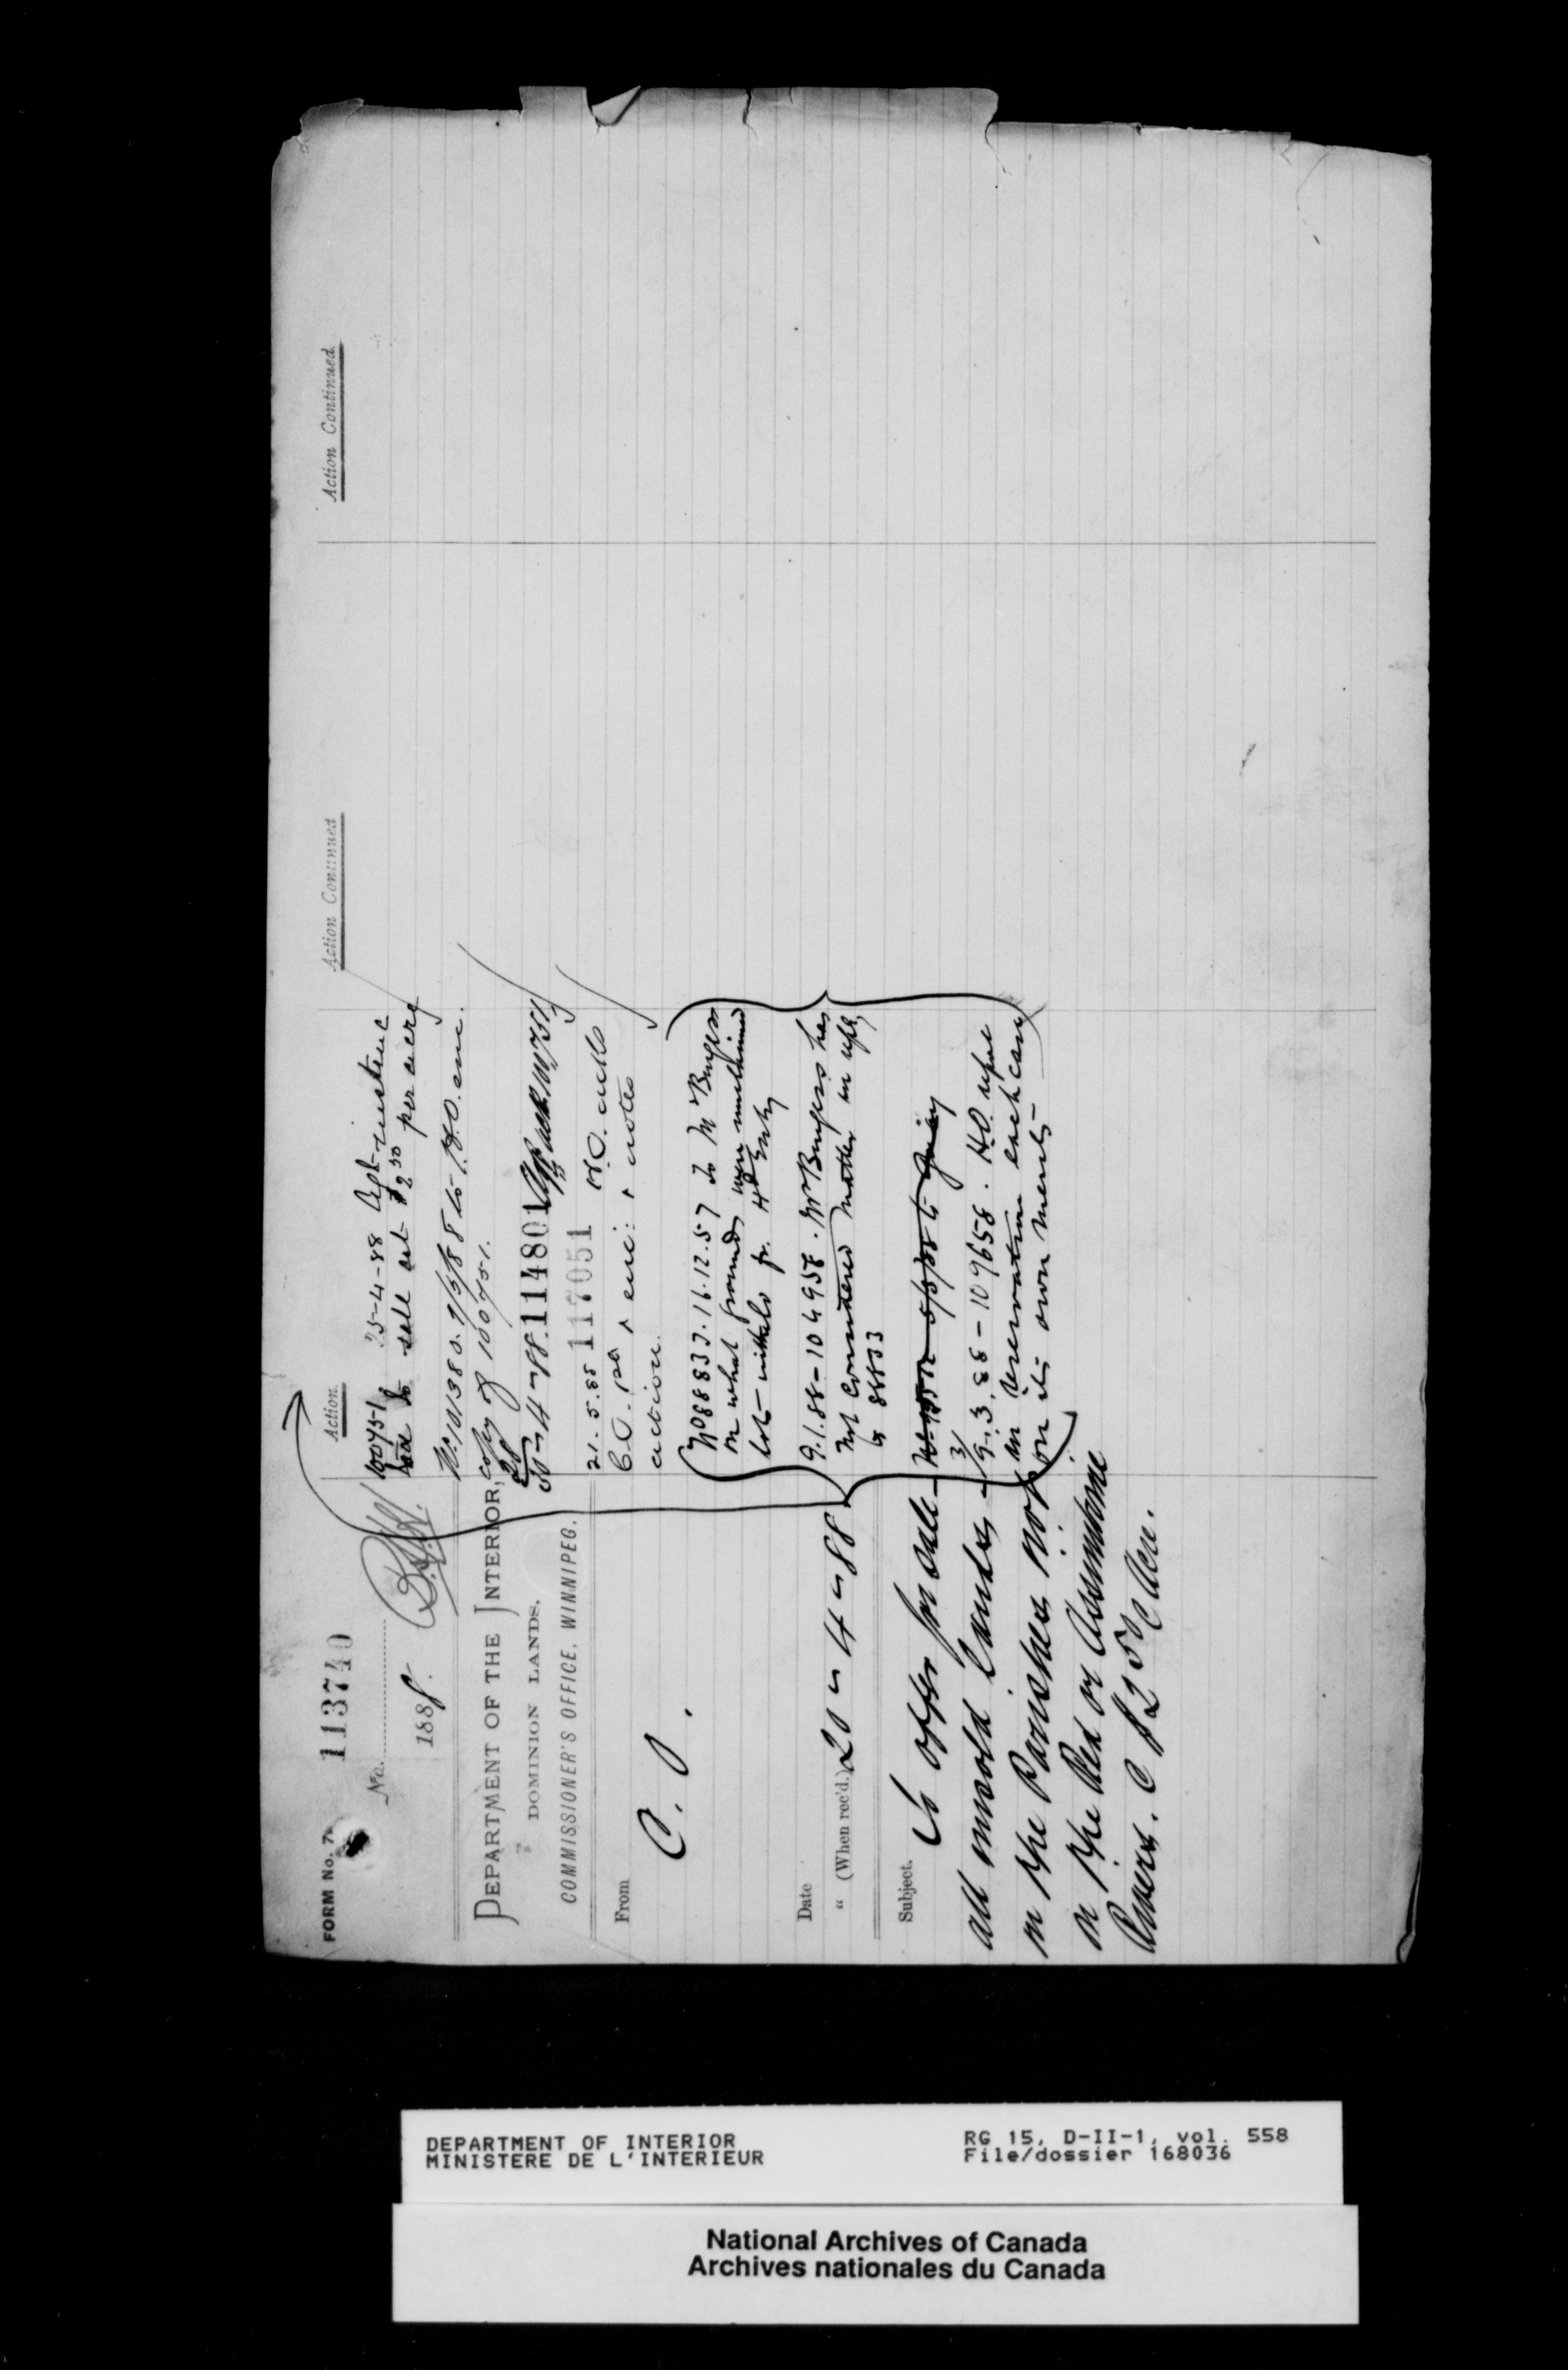 FORM No. 7
113740
No.
1888.
DEPARTMENT OF THE INTERIOR,
DOMINION LANDS,
COMMISSIONER'S OFFICE, WINNIPEG.
From
C. O.
Date
" (When rec'd.) 20-4-88
Subject. To offer for sale
all unsold lands
in the Parishes not
on the Red or Assiniboine
Rivers. @ $2.50 Acre.
Action.
100751 25-4-88 Agt
to sell at $2.50 per acre
No. 101380. 9/5/88 to H.O. enc.
copy of 100751.
-4-88. 114801 Agt ack 100751
21.5.88 117051 H.O. acks
C.O. enc: notes
action.
No 88833. 16.12.87 to Mr Burgess
on what grounds were unclaimed
lots withheld fr. Hd Entry
9.1.88-104958. Mr Burgess has
not considered matter in reply
to 88833
9.3.88-109658. H.O.
reservation each case
on its own merits
Action Continued
Action Continued.
DEPARTMENT OF INTERIOR
MINISTERE DE L'INTERIEUR
RG 15, D-II-1, vol. 558
File/dossier 168036
National Archives of Canada
Archives nationales du Canada